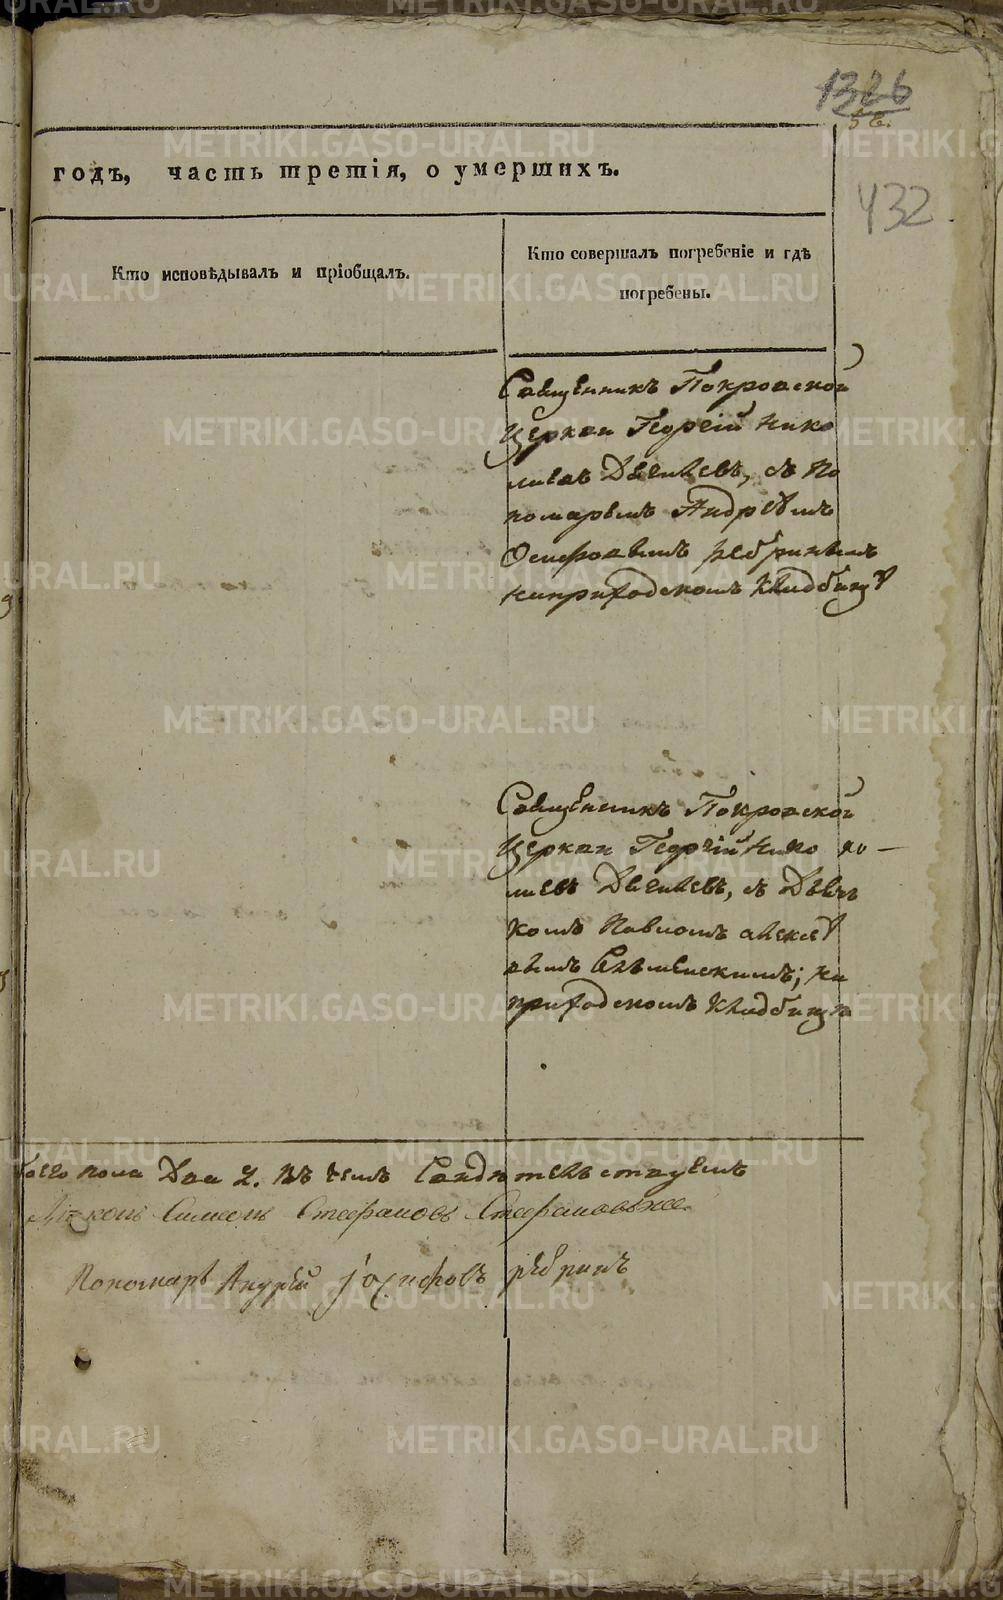 1326
432
годъ, часть третія, о умершихъ.
Кто исповѣдывалъ и пріобщалъ.
Кто совершалъ погребеніе и гдѣ
погребены.
Священникъ Покровской
Церкви Георгій Нико
лаевъ, съ по
номаремъ Андреѣмъ
Осифовымъ Ребринымъ
наприходскомъ Кладбищѣ
Священникъ Покровской
Церкви Георгій Нико
лаевъ, съ Дьяч
комъ Павломъ Алексѣ
вымъ; на
приходскомъ Кладбище
пола Два 2. Въ чемъ Свидѣтельствуемъ
Діаконъ Симеонъ Стефановъ
Пономарь Андрей Іосифовъ Ребринъ
METRIKI.GASO-URAL.RU